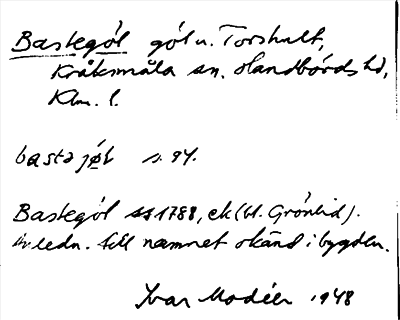 Bastegöl göl u. Torshult,
Kråksmåla sn. Handbörds hd,
Klm. l.
bastajøl s. 94.
Bastegöl 1788, ek (bl. Grönlid).
ledn. till namnet okänd i bygden.
Ivar Modéer 1948